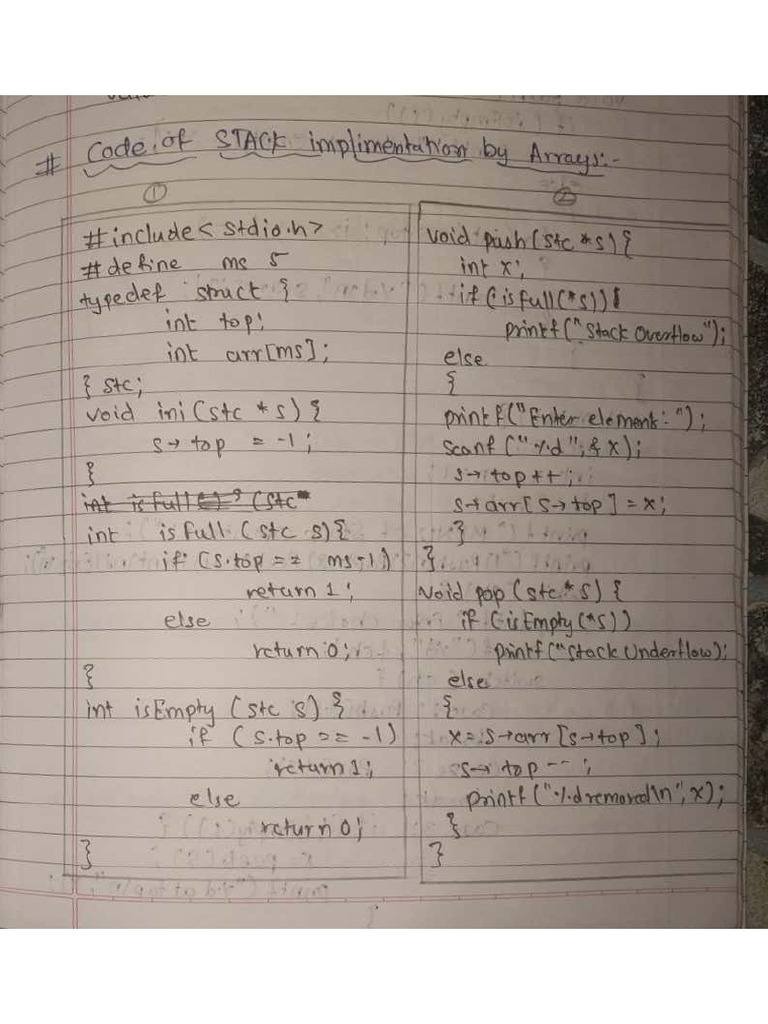 # Code of STACK implimentation by Arrays:-
①
#include< stdio.h>
#define ms 5
typedef struct {
int top;
int arr[ms];
} stc;
void ini (stc *s) {
s→ top = -1;
}
int isfull (stc s){
if (s.top == ms-1)
return 1;
else
return 0;
}
int isEmpty (stc s) {
if (s.top == -1)
return 1;
else
return 0;
}
②
void push (stc *s) {
int x;
if (isfull(*s)){
printf("Stack Overflow");
else
{
printf("Enter element: ");
scanf ("%d", & x);
s→ top ++;
s→arr[s→top] = x;
}
}
void pop (stc *s) {
if (isEmpty (*s))
printf("Stack Underflow);
else
{
x = s→arr [s→top];
s→ top --;
printf ("%d removed\n", x);
}
}